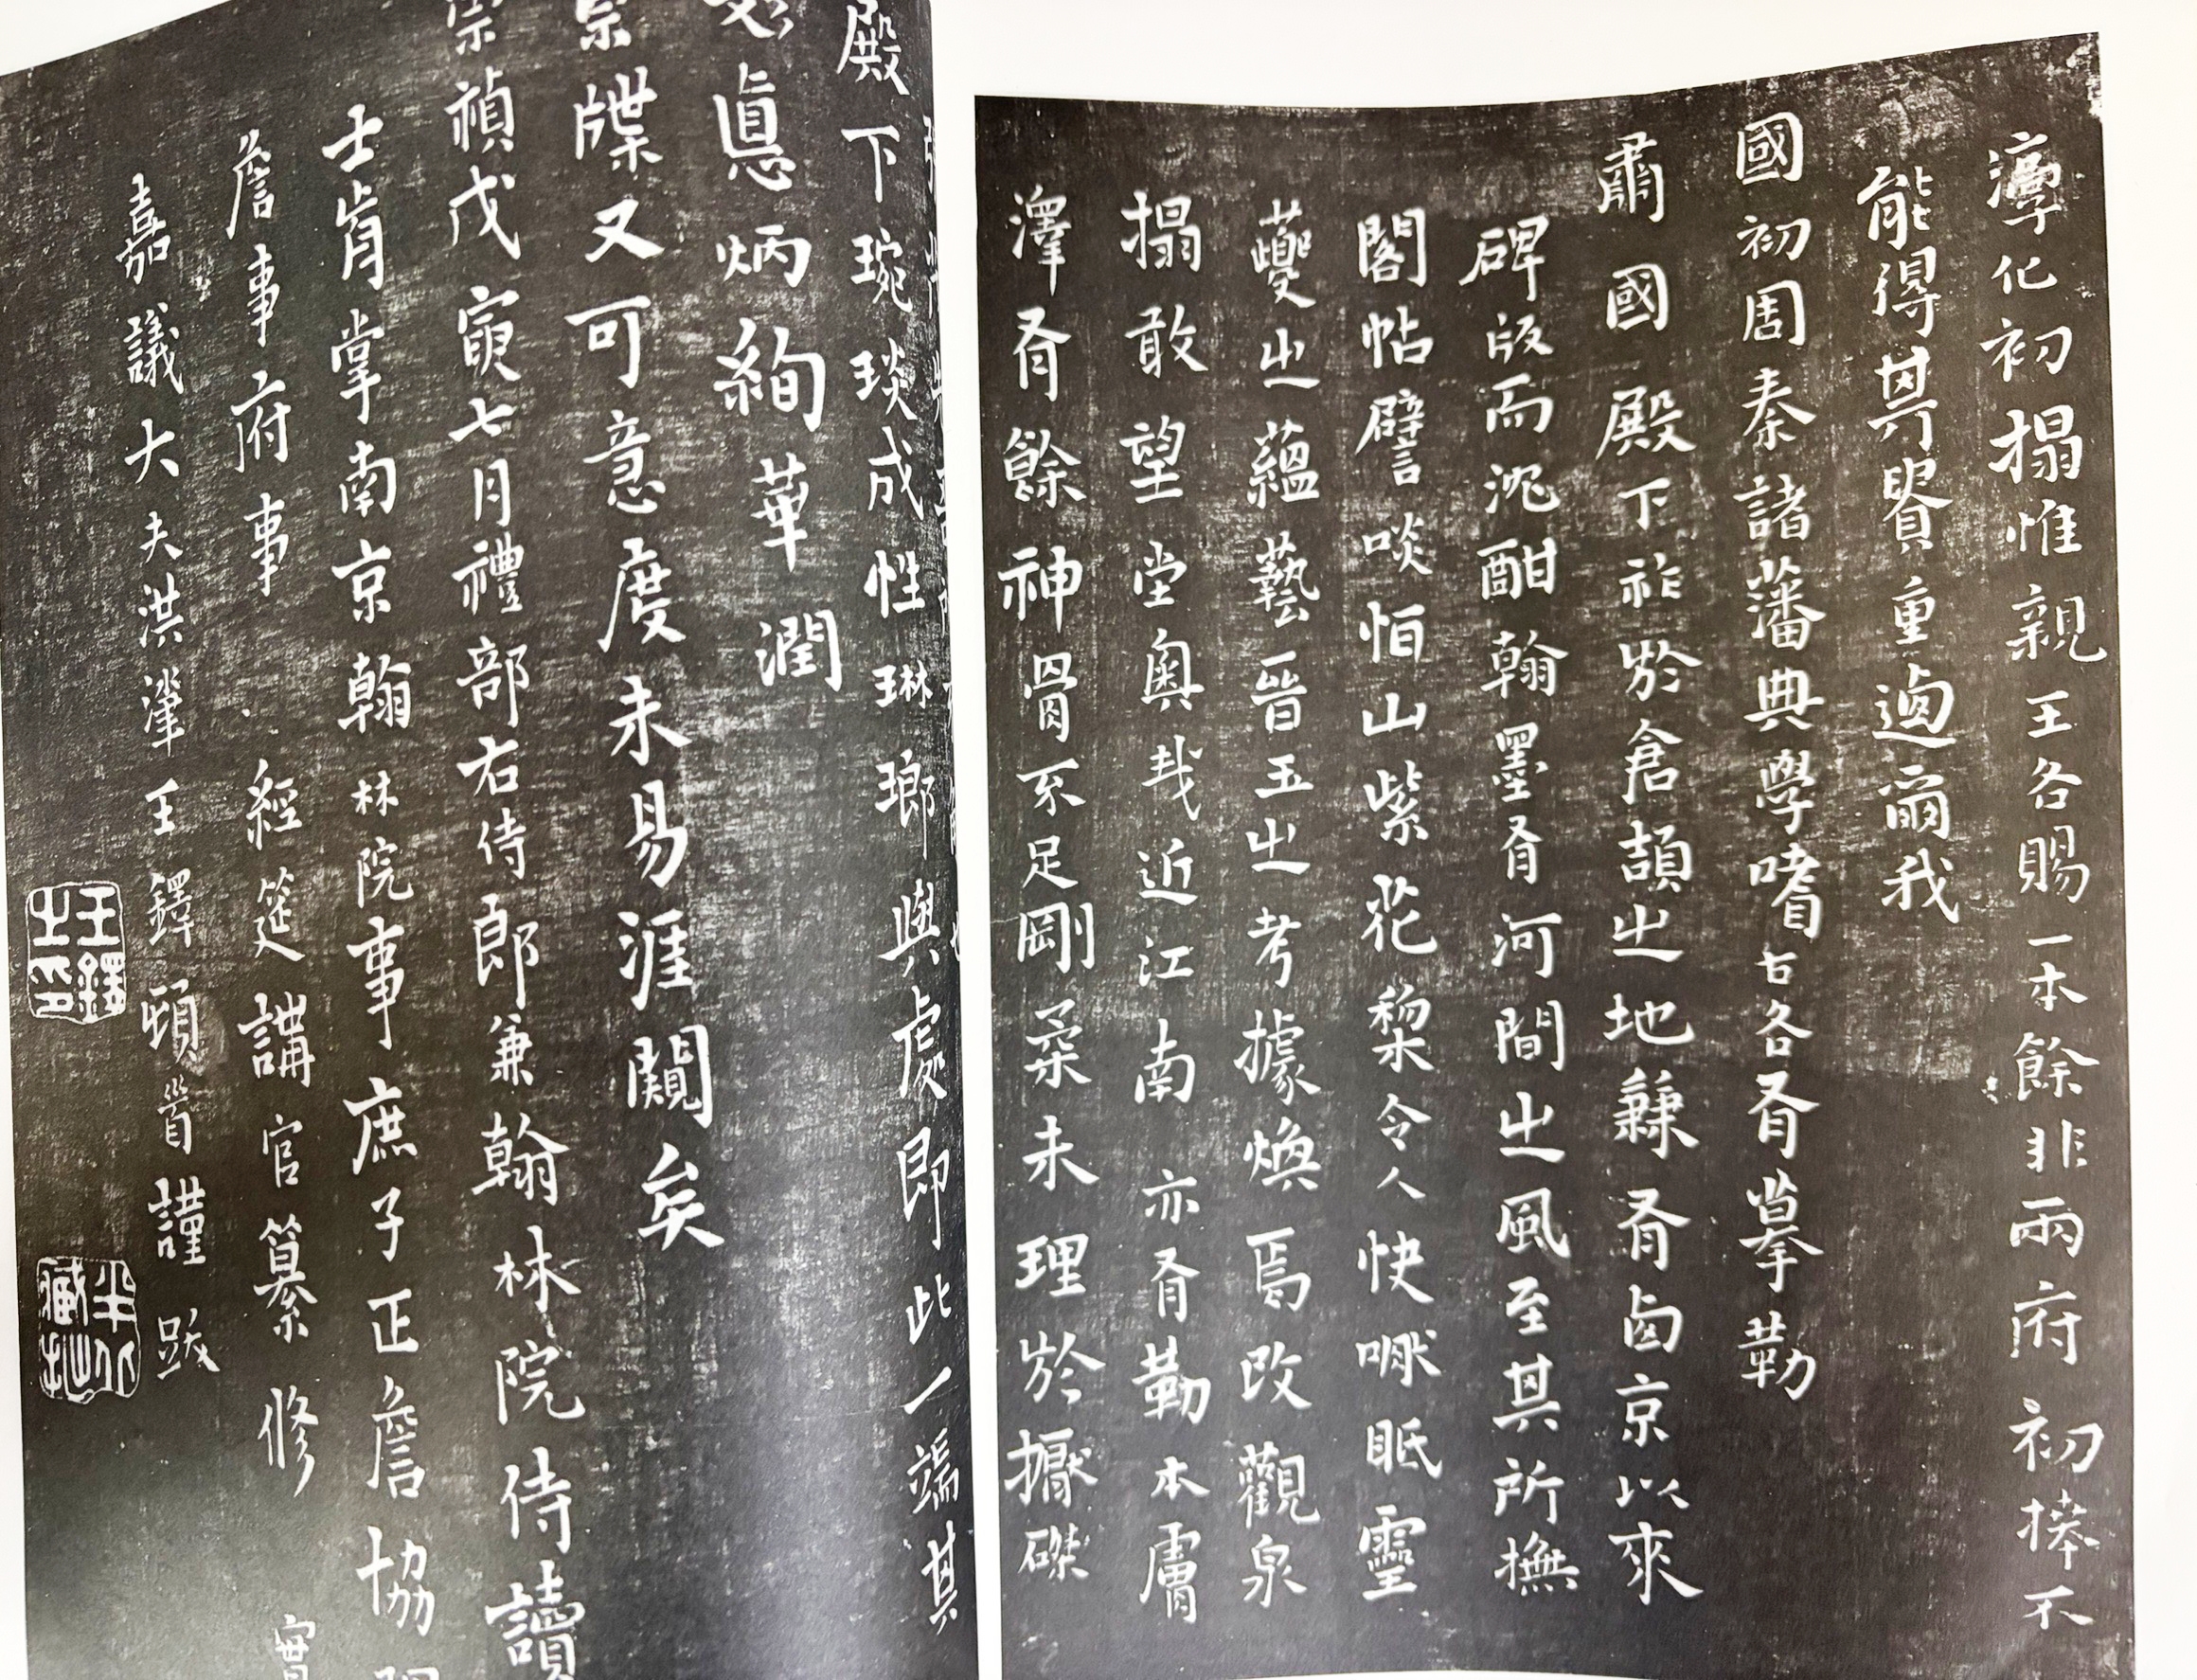 淳化初搨惟親王各賜一本餘非兩府初捧不
能得其貴重過爾我
國初周秦諸藩典學嗜古各有摹勒
肅國殿下祚於倉頡之地蒹有鹵京以來
碑版而沈酣翰墨有河間之風至其所撫
閣帖譬啖怕山紫花棃令人快噘眂靈
夔之蘊藝晉王之考據煥焉改觀泉
搨敢望堂奧哉近江南亦有勒本膚
澤有餘神骨不足剛柔未理於攈磔
殿下琬琰成性琳瑯與處即此一端其
眞炳絢華潤
宗牒又可意度未易涯闚矣
崇禎戊寅七月禮部右侍郎兼翰林院侍讀
士肯掌南京翰林院事庶子正詹協
詹事府事 經筵講官纂修 實
嘉議大夫洪洞王鐸頓首謹跋
王鐸之印